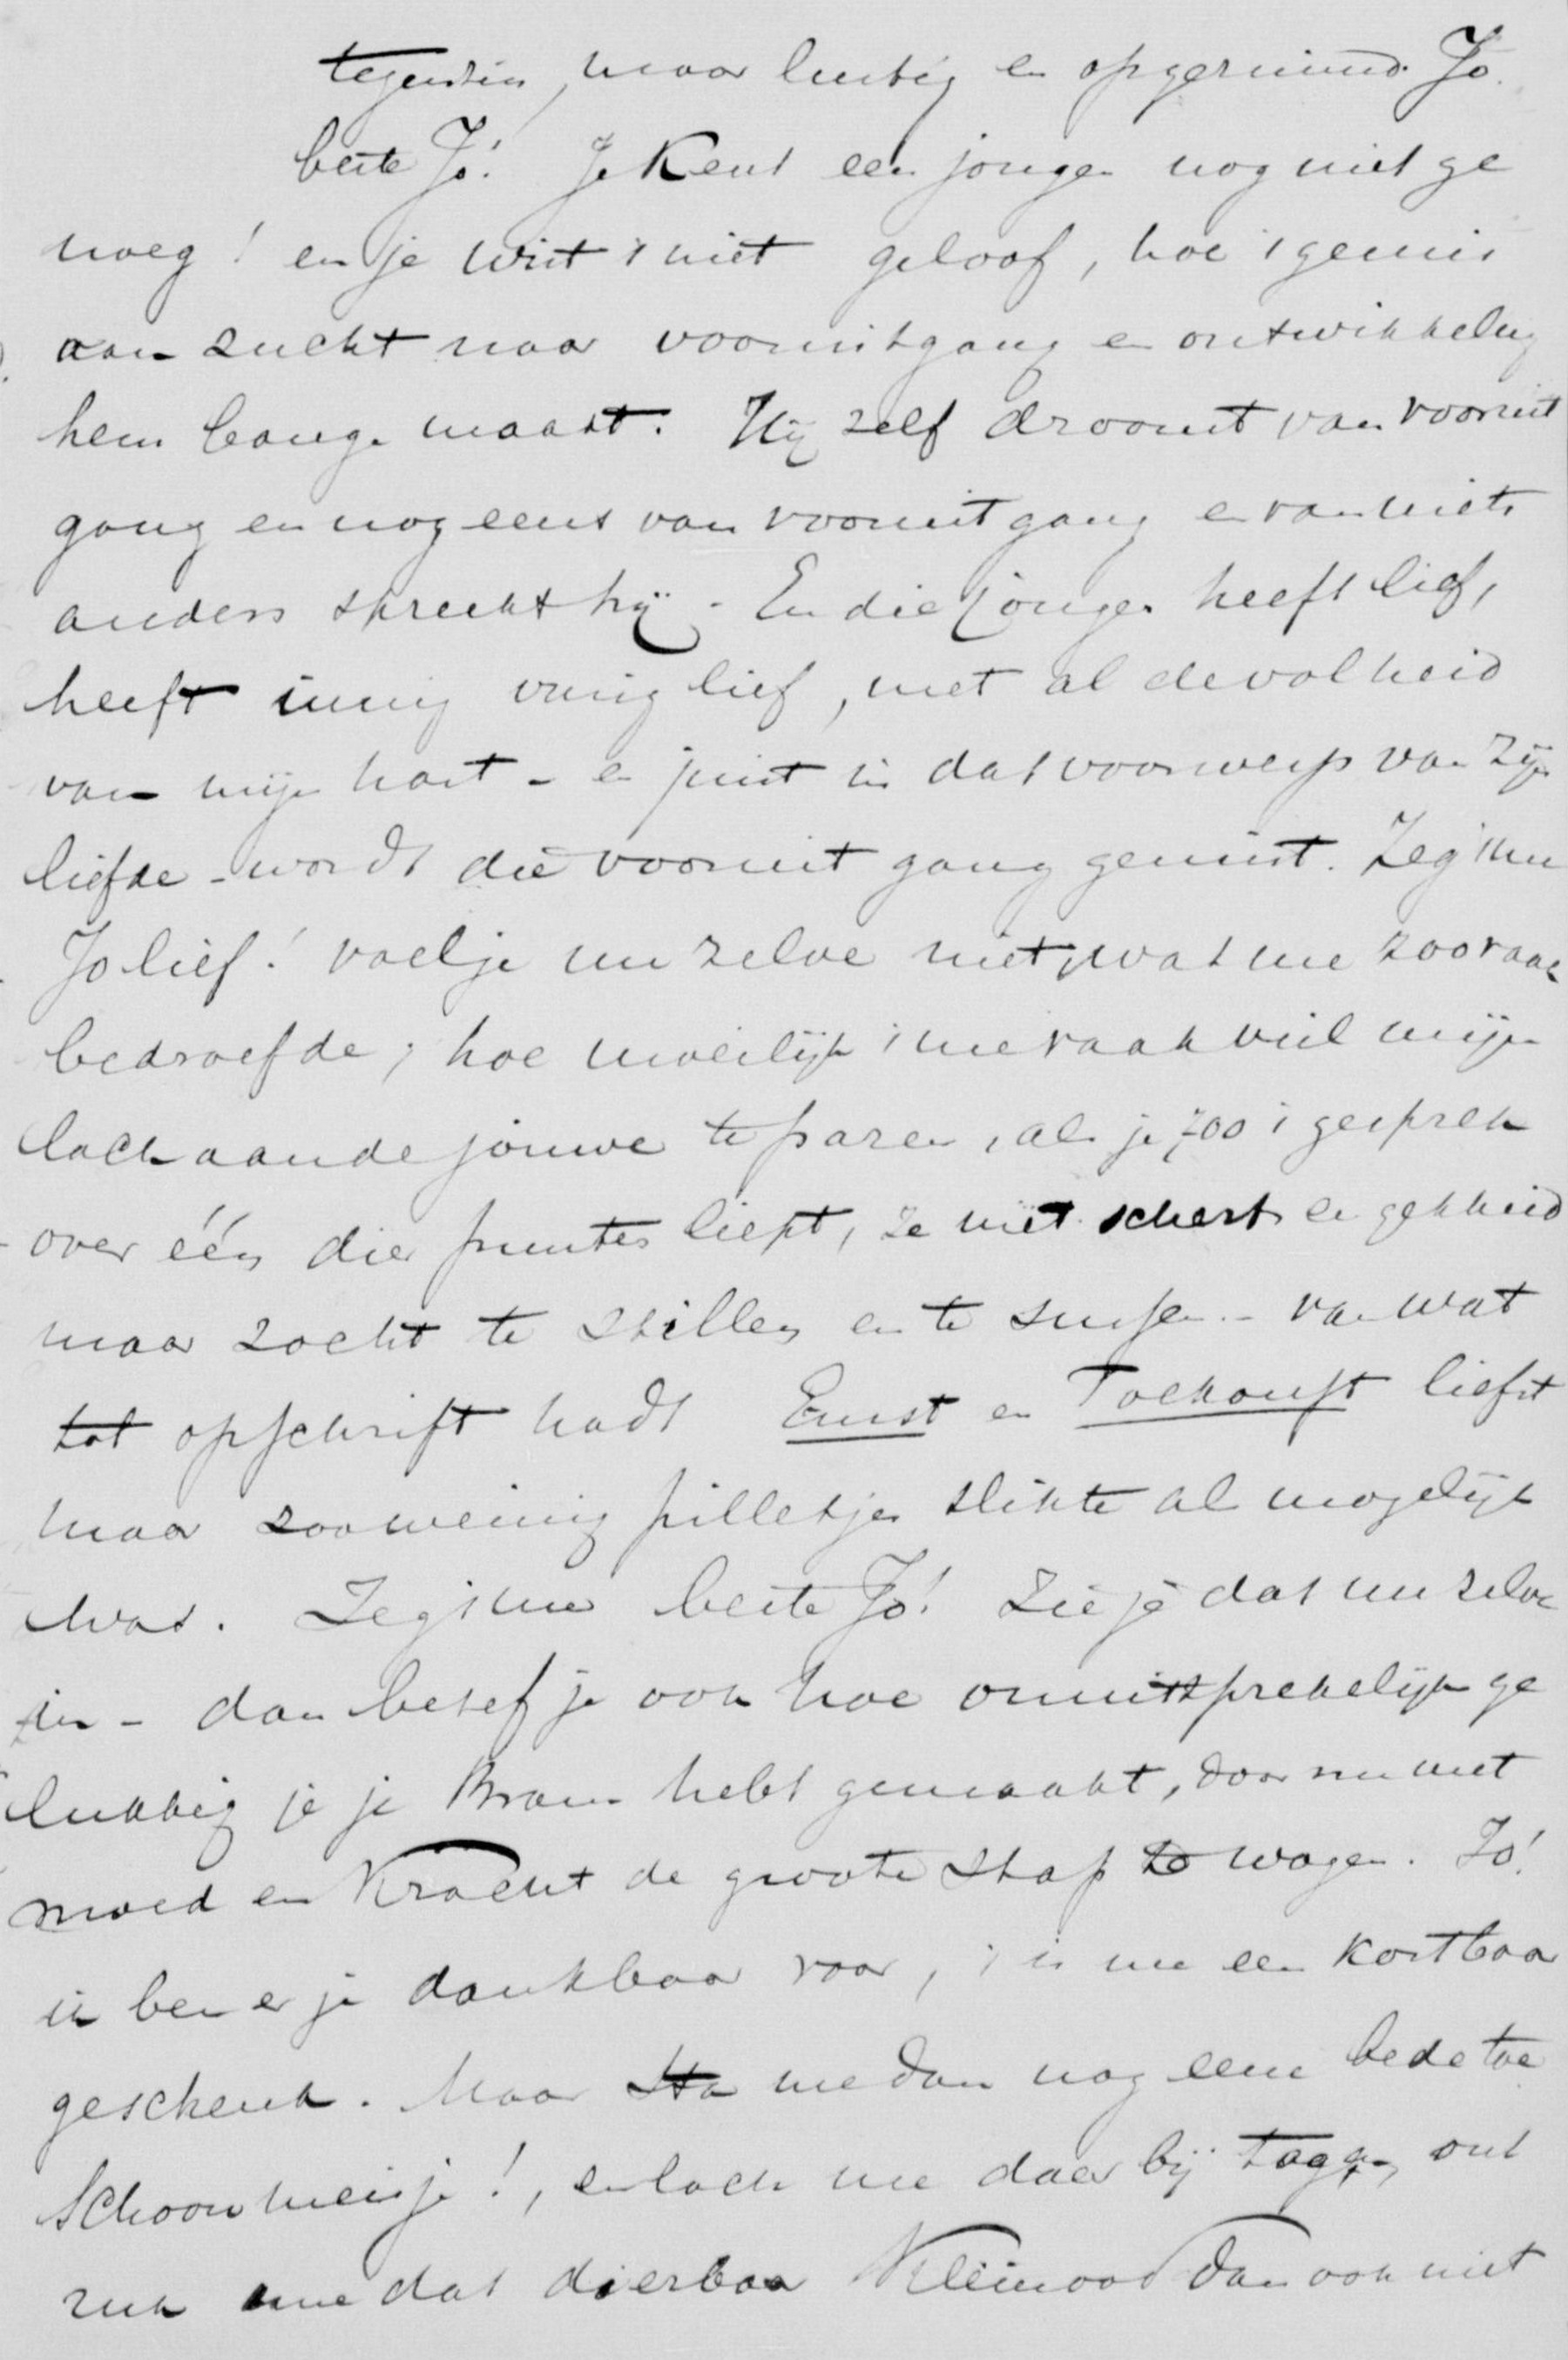 tegenzin, maar lustig en opgeruimd. Jo.
beste Jo! Je Kent een jongen nog niet ge
noeg! en je wist 't niet geloof, hoe 't gemis
aan zucht naar vooruitgang en ontwikkeling
hem bange maakt. Hij zelf droomt van vooruit
gang en nog eens van vooruitgang en van niets
anders spreekt hij. - En die jongen heeft lief,
heeft innig vurig lief, met al de volheid
van mijn hart - en juist in dat voorwerp van zijn
liefde - wordt die vooruitgang gemist. Zeg 't me
Jo lief! voel je nu zelve niet, wat me zoo vaak
bedroefde; hoe moeilijk 't me vaak viel mijn
lach aan de jouwe te paren, als je zoo 't gesprek
over één dier punten liept, ze met scherts en gekheid
maar zocht te stillen en te sussen - van wat
tot opschrift hadt Ernst en Toekomst liefst
maar zoo weinig pilletjes slikte als mogelijk
was. Zeg 't me beste Jo! Zie je dat nu zelve
in - dan besef je ook hoe onuitsprekelijk ge
lukkig je je Bram hebt gemaakt, door nu met
moed en Kracht de groote stap te wagen. Jo!
ik ben er je dankbaar voor, 't is me een kostbaar
geschenk. Maar sta me dan nog eene bede toe
Schoon meisje!, en lach me daar bij tegen, ont
ruk me dat dierbaar Kleinood dan ook niet